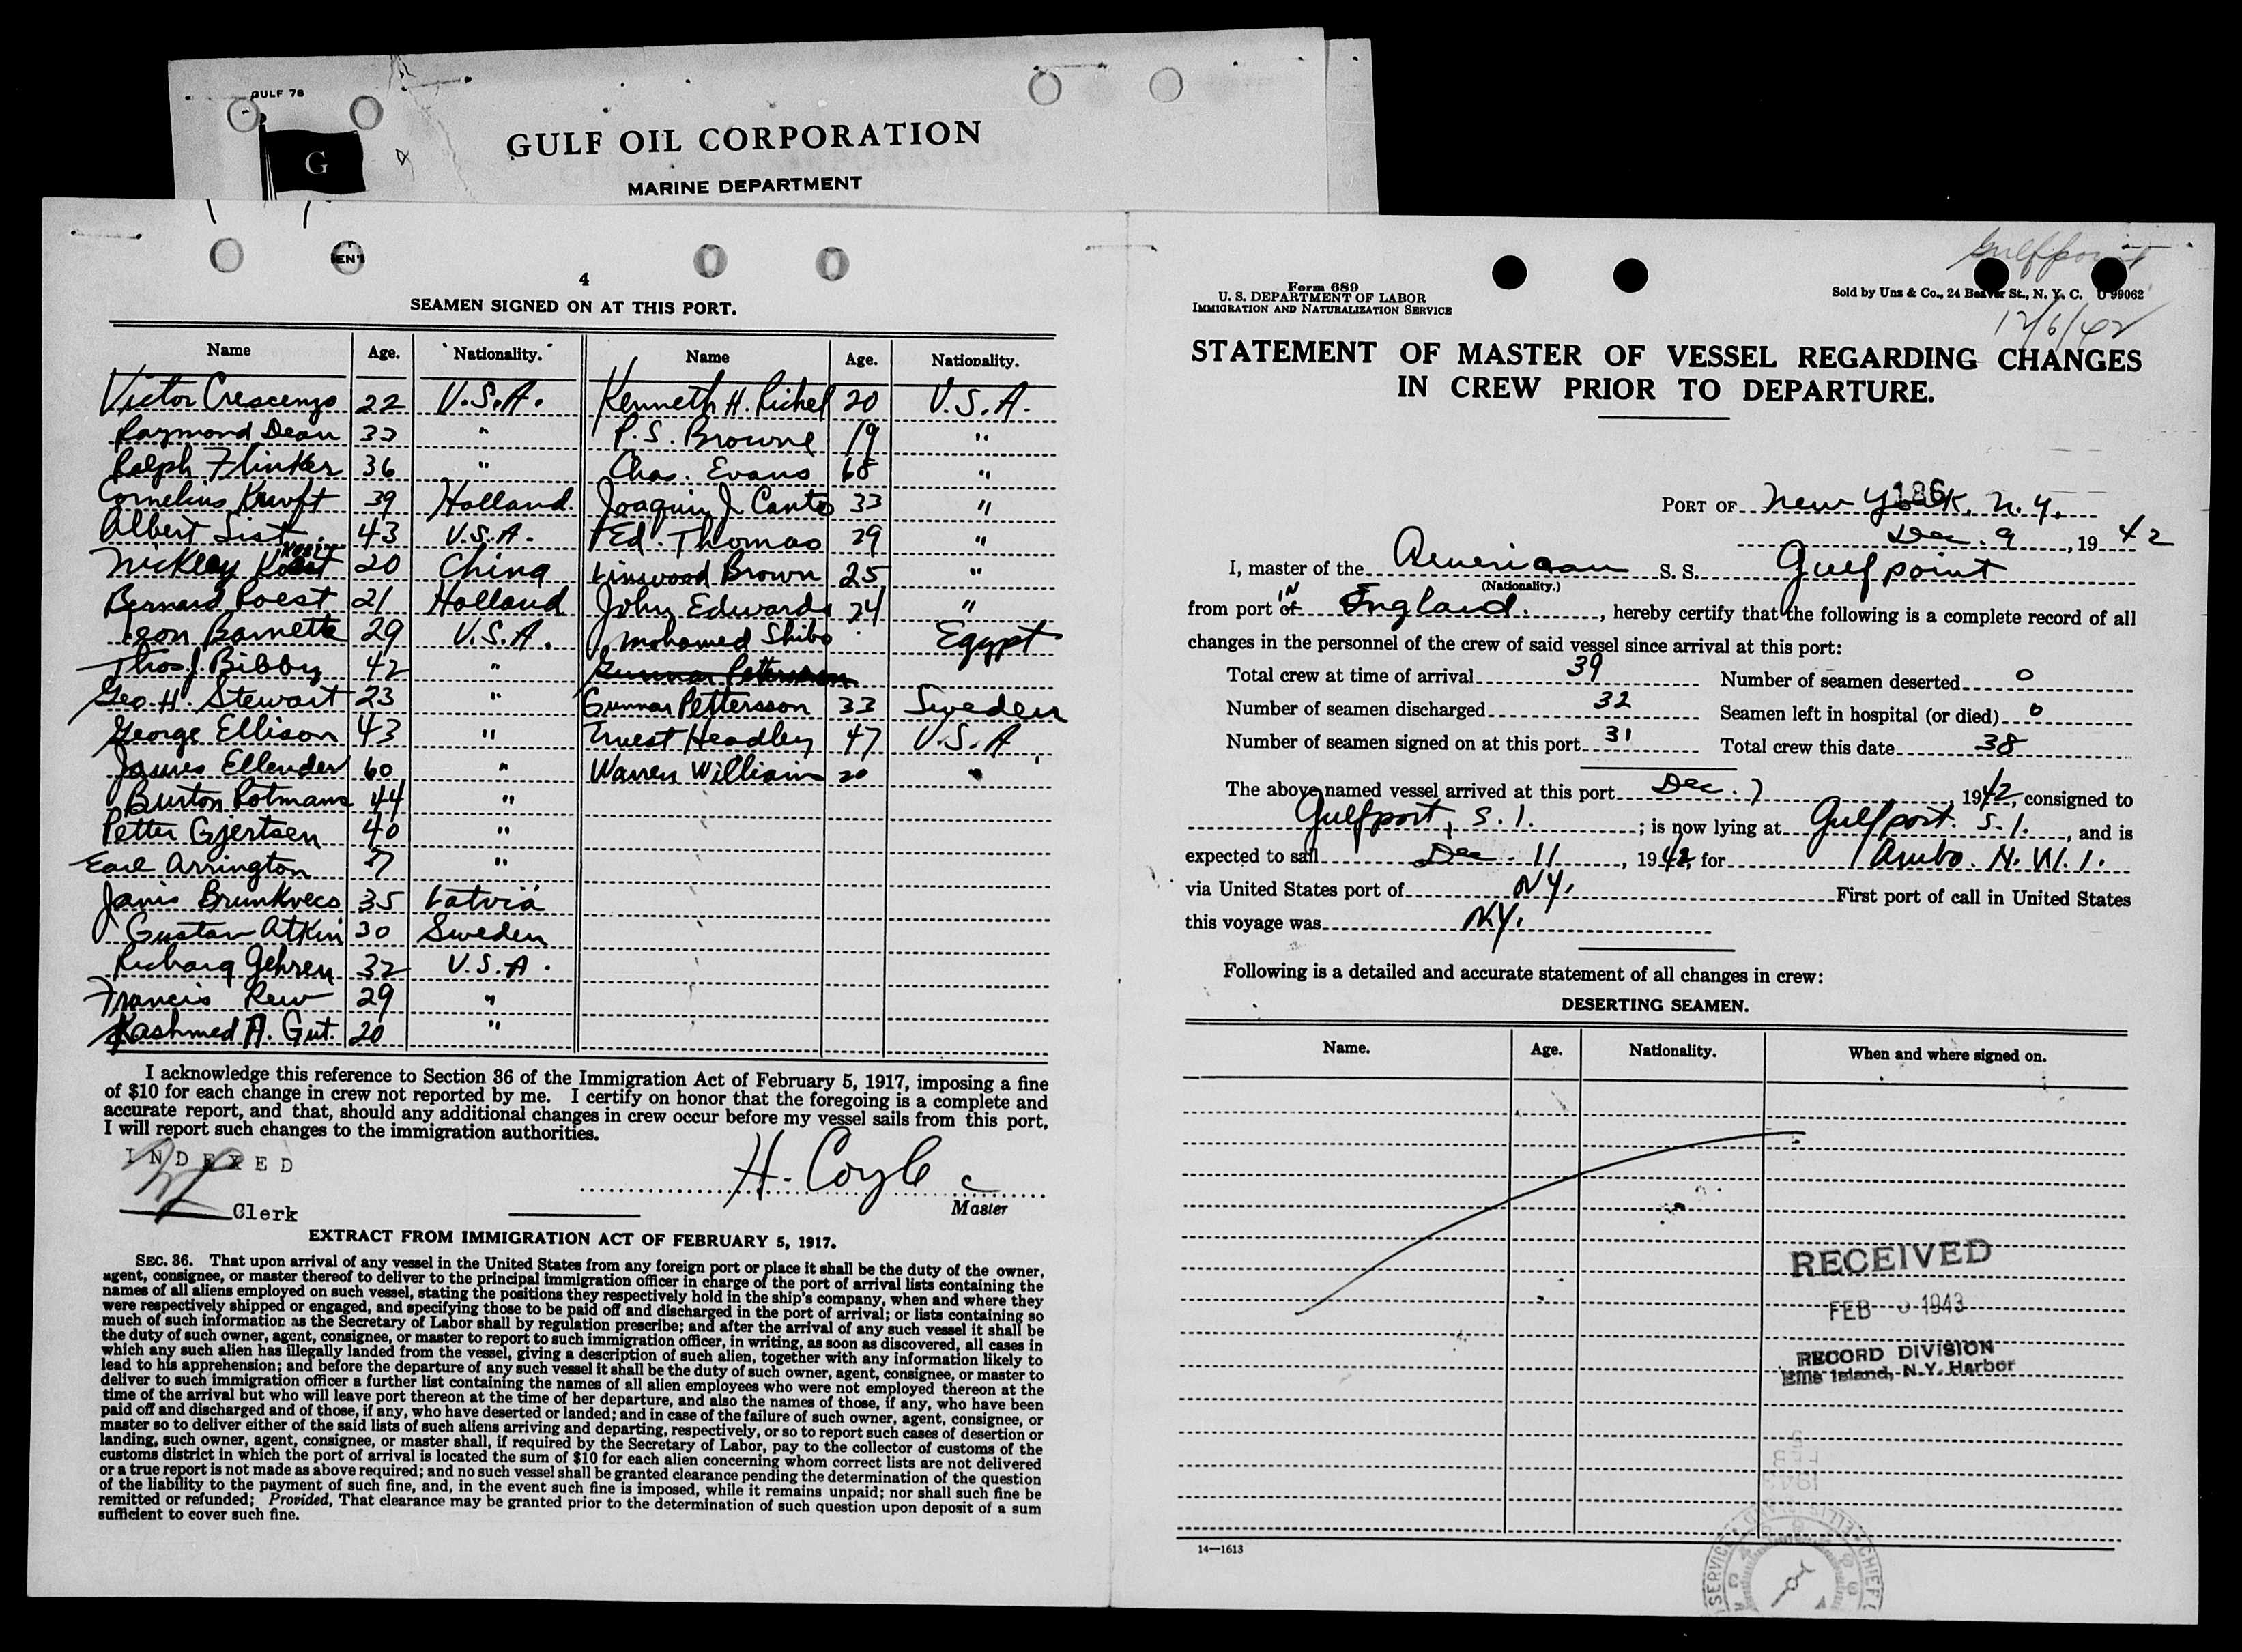 GULF 78
G
GULF OIL CORPORATION
MARINE DEPARTMENT
4
SEAMEN SIGNED ON AT THIS PORT.
Name Age. Nationality. Name Age. Nationality.
Victor Crescenzo 22 U.S.A. Kenneth H. Richel 20 U.S.A.
Raymond Dean 32 " P.S. Browne 19 "
Ralph Flinker 36 " Chas. Evans 68 "
Cornelius 39 Holland Joaquin J. Canto 33 "
Albert List 43 U.S.A. Ed. Thomas 29 "
20 China Linswood Brown 25 "
Bernard Roest 21 Holland John Edwards 24 "
Leon Barnette 29 U.S.A. Mohamed Shibo Egypt
Thos. J. Bibby 42 " Gunnar Pettersson
Geo. H. Stewart 23 " Gunnar Pettersson 33 Sweden
George Ellison 43 " Ernest Headley 47 U.S.A
James Ellender 60 " Warren William 20 "
Burton Rotmans 44 "
Petter Gjertsen 40 "
Earl Arrington "
Janis Brunkvecs 35 Latvia
Gustav Atkin 30 Sweden
Richard Gehren 32 U.S.A.
Francis Rew 29 "
Kashmed A. Gut. 20 "
I acknowledge this reference to Section 36 of the Immigration Act of February 5, 1917, imposing a fine
of $10 for each change in crew not reported by me. I certify on honor that the foregoing is a complete and
accurate report, and that, should any additional changes in crew occur before my vessel sails from this port,
I will report such changes to the immigration authorities.
INDEXED
H. Coyle
Clerk
Master
EXTRACT FROM IMMIGRATION ACT OF FEBRUARY 5, 1917.
SEC. 36. That upon arrival of any vessel in the United States from any foreign port or place it shall be the duty of the owner,
agent, consignee, or master thereof to deliver to the principal immigration officer in charge of the port of arrival lists containing the
names of all aliens employed on such vessel, stating the positions they respectively hold in the ship's company, when and where they
were respectively shipped or engaged, and specifying those to be paid off and discharged in the port of arrival; or lists containing so
much of such information as the Secretary of Labor shall by regulation prescribe; and after the arrival of any such vessel it shall be
the duty of such owner, agent, consignee, or master to report to such immigration officer, in writing, as soon as discovered, all cases in
which any such alien has illegally landed from the vessel, giving a description of such alien, together with any information likely to
lead to his apprehension; and before the departure of any such vessel it shall be the duty of such owner, agent, consignee, or master to
deliver to such immigration officer a further list containing the names of all alien employees who were not employed thereon at the
time of the arrival but who will leave port thereon at the time of her departure, and also the names of those, if any, who have been
paid off and discharged and of those, if any, who have deserted or landed; and in case of the failure of such owner, agent, consignee, or
master so to deliver either of the said lists of such aliens arriving and departing, respectively, or so to report such cases of desertion or
landing, such owner, agent, consignee, or master shall, if required by the Secretary of Labor, pay to the collector of customs of the
customs district in which the port of arrival is located the sum of $10 for each alien concerning whom correct lists are not delivered
or a true report is not made as above required; and no such vessel shall be granted clearance pending the determination of the question
of the liability to the payment of such fine, and, in the event such fine is imposed, while it remains unpaid; nor shall such fine be
remitted or refunded; Provided, That clearance may be granted prior to the determination of such question upon deposit of a sum
sufficient to cover such fine.
Gulfpoint
Form 689
U. S. DEPARTMENT OF LABOR
IMMIGRATION AND NATURALIZATION SERVICE
Sold by Unz & Co., 24 Beaver St., N. Y. C. U 99062
12/6/42
STATEMENT OF MASTER OF VESSEL REGARDING CHANGES
IN CREW PRIOR TO DEPARTURE.
186
PORT OF New York, N.Y.
Dec. 9, 1942
I, master of the American S. S. Gulfpoint
(Nationality.)
from port of IN England., hereby certify that the following is a complete record of all
changes in the personnel of the crew of said vessel since arrival at this port:
Total crew at time of arrival 39 Number of seamen deserted 0
Number of seamen discharged 32 Seamen left in hospital (or died) 0
Number of seamen signed on at this port 31 Total crew this date 38
The above named vessel arrived at this port Dec. 7 1942, consigned to
Gulfport, S.I.; is now lying at Gulfport. S.I., and is
expected to sail Dec. 11, 1942, for Aruba. N.W.I.
via United States port of NY. First port of call in United States
this voyage was NY.
Following is a detailed and accurate statement of all changes in crew:
DESERTING SEAMEN.
Name. Age. Nationality. When and where signed on.
RECEIVED
FEB 1943
RECORD DIVISION
Ellis Island, N.Y. Harbor
14—1613